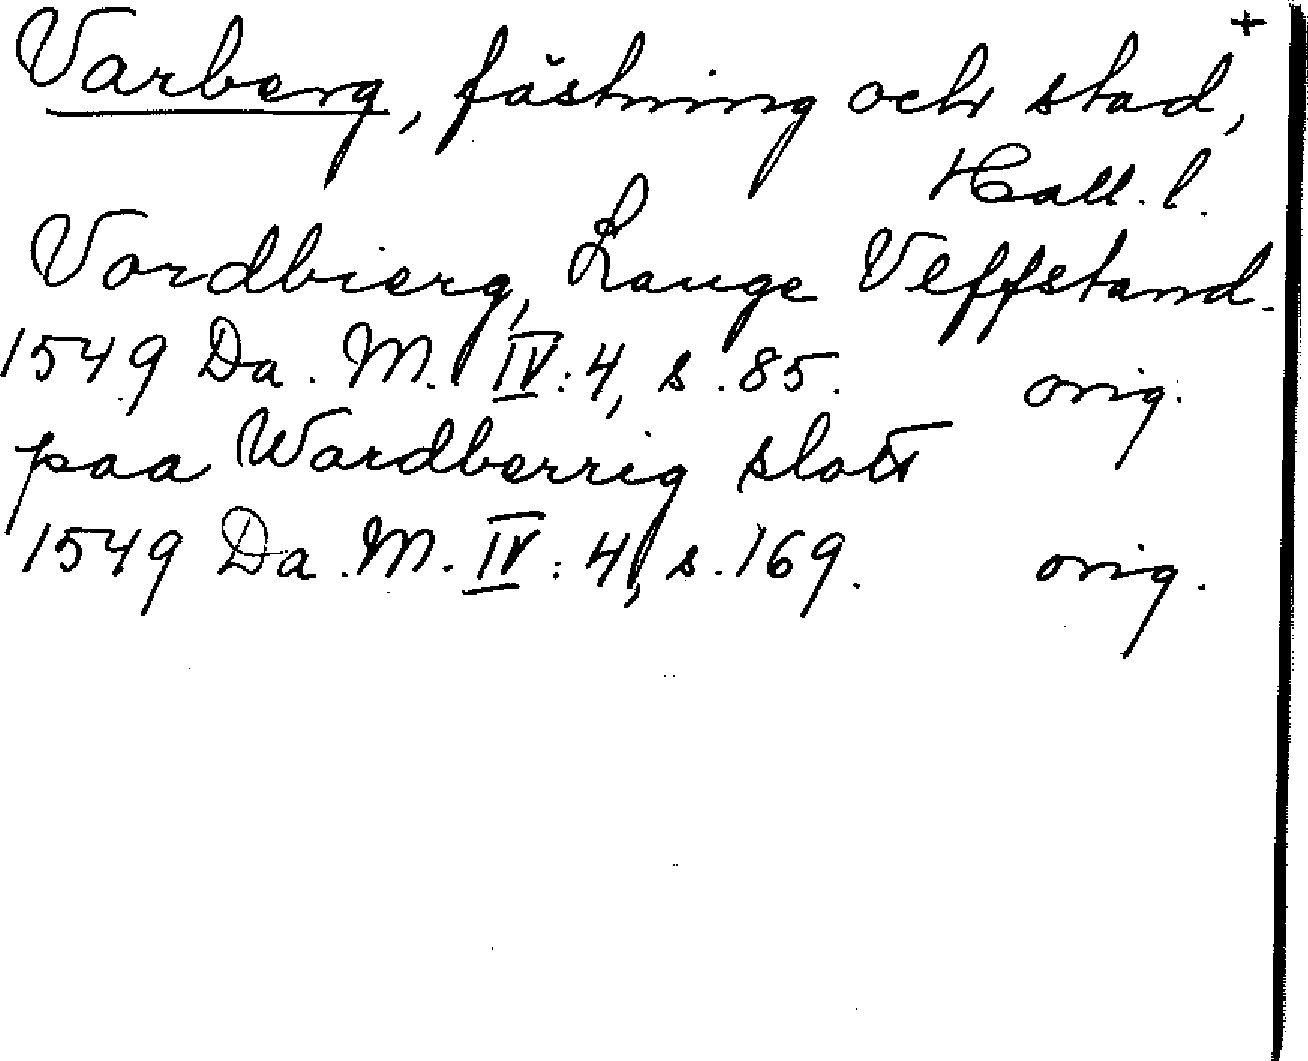 +
Varberg, fästning och stad,
Hall. l.
Vardbierg, Lauge Veffstand.
1549 Da. M. IV:4, s. 85. orig.
paa Wardberrig slott
1549 Da. M. IV:4, s. 169. orig.